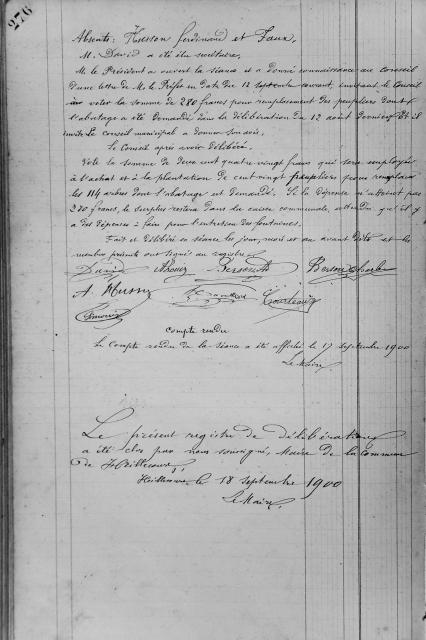 276
Absents: Husson Ferdinand et Faux,
M. David a été élu secrétaire,
M. le Président a ouvert la séance et a donné connaissance au Conseil
d'une lettre de M. le Préfet en date du 12 septembre courant, invitant le Conseil
à voter la somme de 280 francs pour remplacement des peupliers dont
l'abatage a été demandé dans la délibération du 12 août dernier et il
invite le conseil municipal à donner son avis,
Le Conseil après avoir délibéré.
Vote la somme de deux cent quatre vingt francs qui sera employée
à l'achat et à la plantation de cent vingt peupliers pour remplacer
les 114 arbres dont l'abatage est demandé. Si la dépense n'atteint pas
280 francs, le surplus restera dans la caisse communale, attendu qu'il y
a des dépenses à faire pour l'entretien des fontaines.
Fait et délibéré en séance les jour, mois et an avant dits et les
membres présents ont signé au registre
David Bersont Bersont Charles
A. Husson
Compte rendu
Le Compte rendu de la séance a été affiché le 17 septembre 1900
Le Maire,
Le présent registre de délibérations
a été clos par nous soussigné, Maire de la commune
de Heillecourt,
Heillecourt, le 18 septembre 1900
Le Maire,